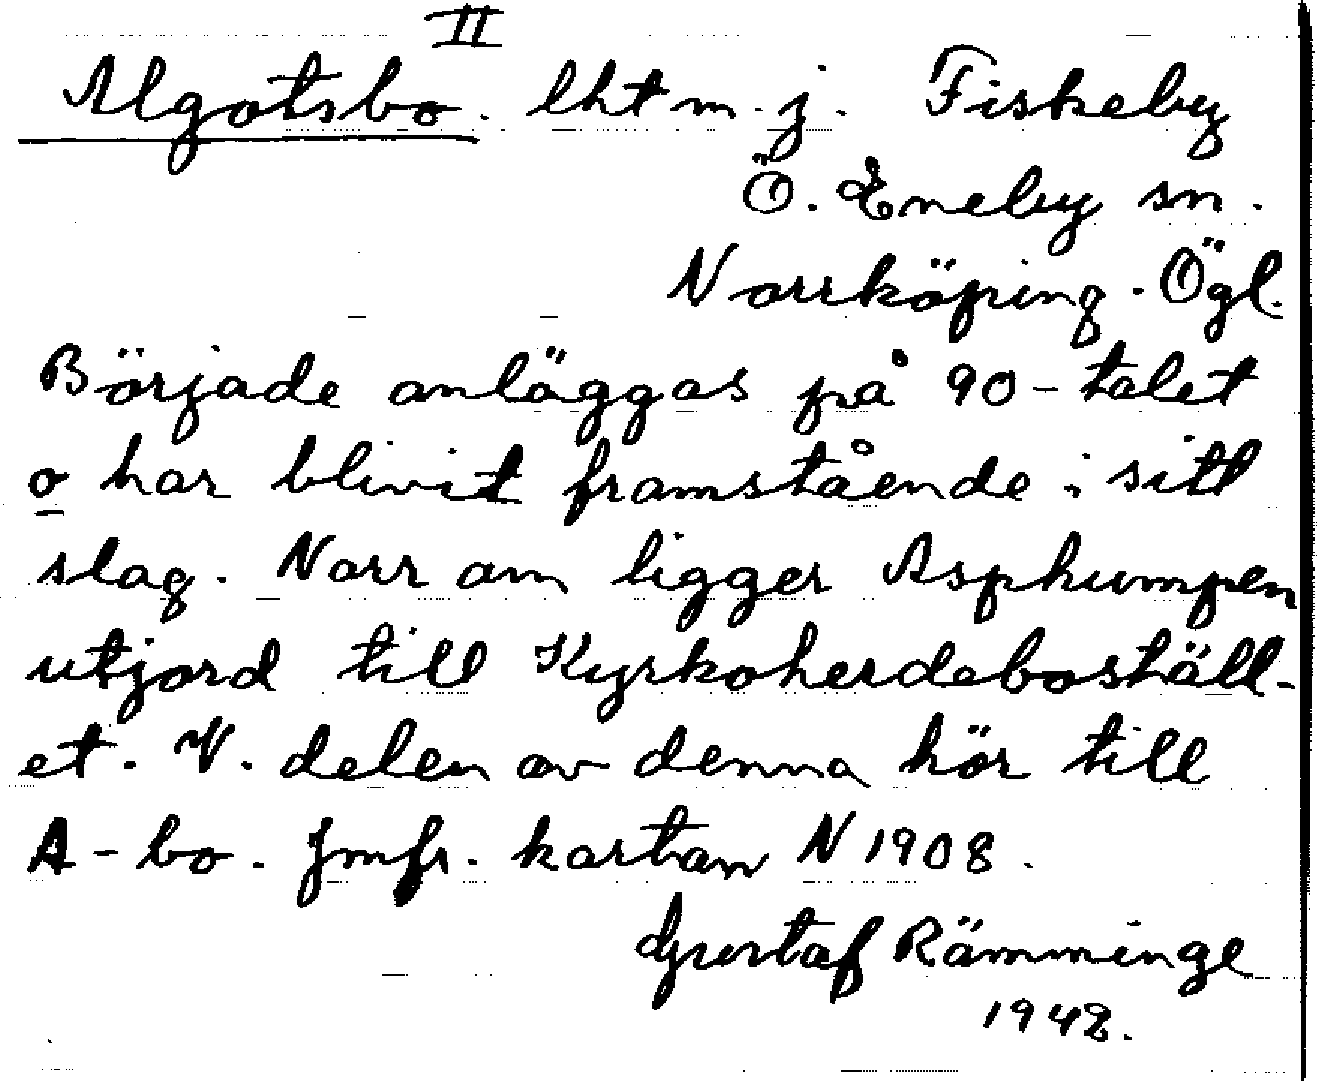 II
Algotsbo. lht m. j. Fiskeby
Ö. Eneby sn.
Norrköping. Ögl.
Började anläggas på 90-talet
o har blivit framstående i sitt
slag. Norr om ligger Asphumpen
utjord till Kyrkoherdeboställ-
et. V. delen av denna hör till
A-bo. Jmfr. kartan N 1908.
Gustaf Rämminge
1942.